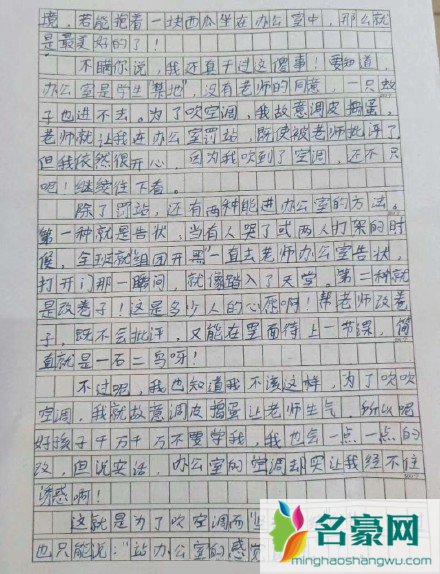 境，若能抱着一块西瓜坐在办公室中，那么就
是最美好的了！
不瞒你说，我还真干过这傻事！要知道，
办公室是学生“禁地”，没有老师的同意，一只蚊
子也进不去。为了吹空调，我故意调皮捣蛋，
老师就让我进办公室罚站，既使被老师批评了
但我依然很开心，因为我吹到了空调，还不只
呢！继续往下看。
除了罚站，还有两种能进办公室的方法。
第一种就是告状，当有人哭了或两人打架的时
候，全班就组团开黑一直去老师办公室告状，
打开门那一瞬间，就像踏入了天堂。第二种就
是改卷子！这是多少人的心愿啊！帮老师改卷
子，既不会批评，又能在里面待上一节课，简
直就是一石二鸟呀！
不过呢，我也知道我不该这样，为了吹吹
空调，我就故意调皮捣蛋让老师生气，所以呢
好孩子千万千万不要学我，我也会一点一点的
改，但说实话，办公室的空调却实让我经不住
诱惑啊！
这就是为了吹空调而
也只能说：“站办公室的感
名豪网
minghaoshangwu.com